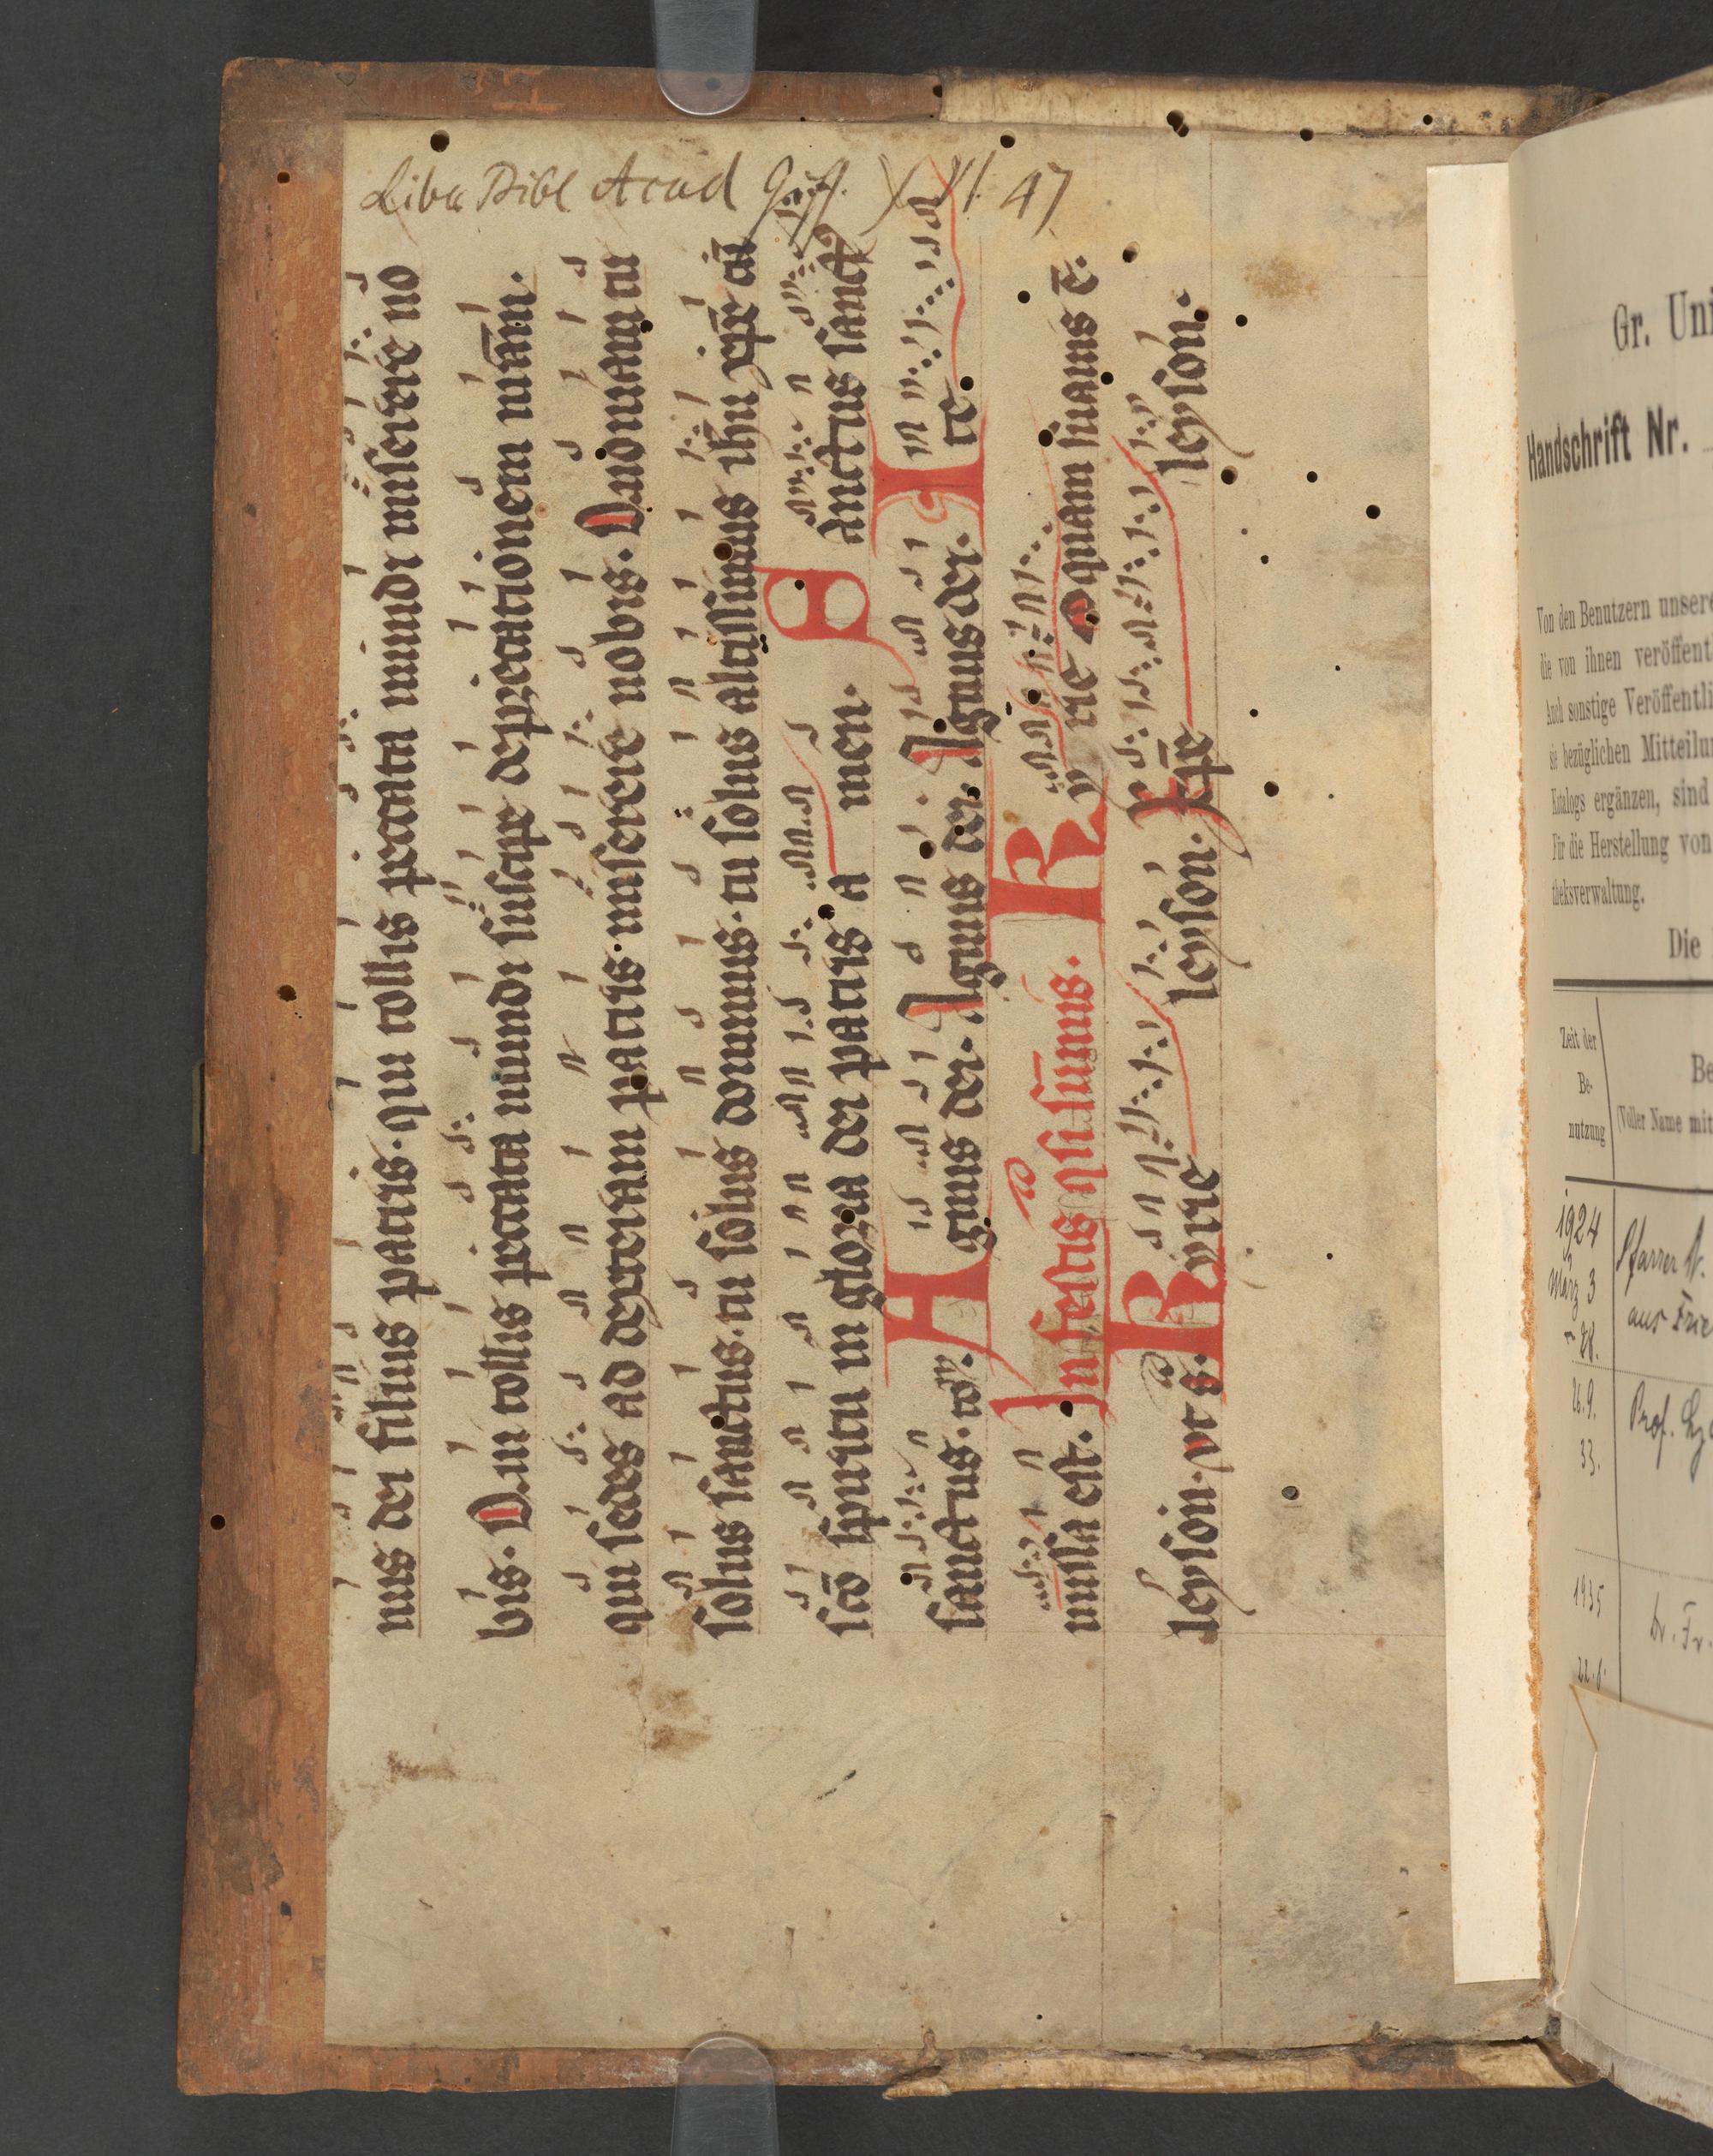 Liber Bibl Acad Giss. XXVI. 47
nus dei filius patris. qui tollis peccata mundi miserere no
bis. Qui tollis peccata mundi suscipe deprecationem nr̄am.
qui sedes ad dexteram patris. miserere nobis. Quoniam tu
solus sanctus. tu solus dominus. tu solus altissimus ihu xp̄e cū
scō spiritu in gloria dei patris a men. S anctus sanct9
sanctus. to. A gnus dei. Agnus dei. Agnus dei. I te
missa est. In festis si sūmus. K yrie O quam suauis ē.
leyson. vt s. Kyrie leyson. Xp̄e leyson.
Gr. Uni
Handschrift Nr.
Von den Benutzern unsere
die von ihnen veröffent
Auch sonstige Veröffentli
sie bezüglichen Mitteilu
Katalogs ergänzen, sind
Für die Herstellung von
theksverwaltung.
Die
Zeit der
Be-
nutzung
Be
(Voller Name mit
1924
März 3
28.
Pfarrer
aus Frie
26.9.
33.
Prof.
1935
Dr. Fr.